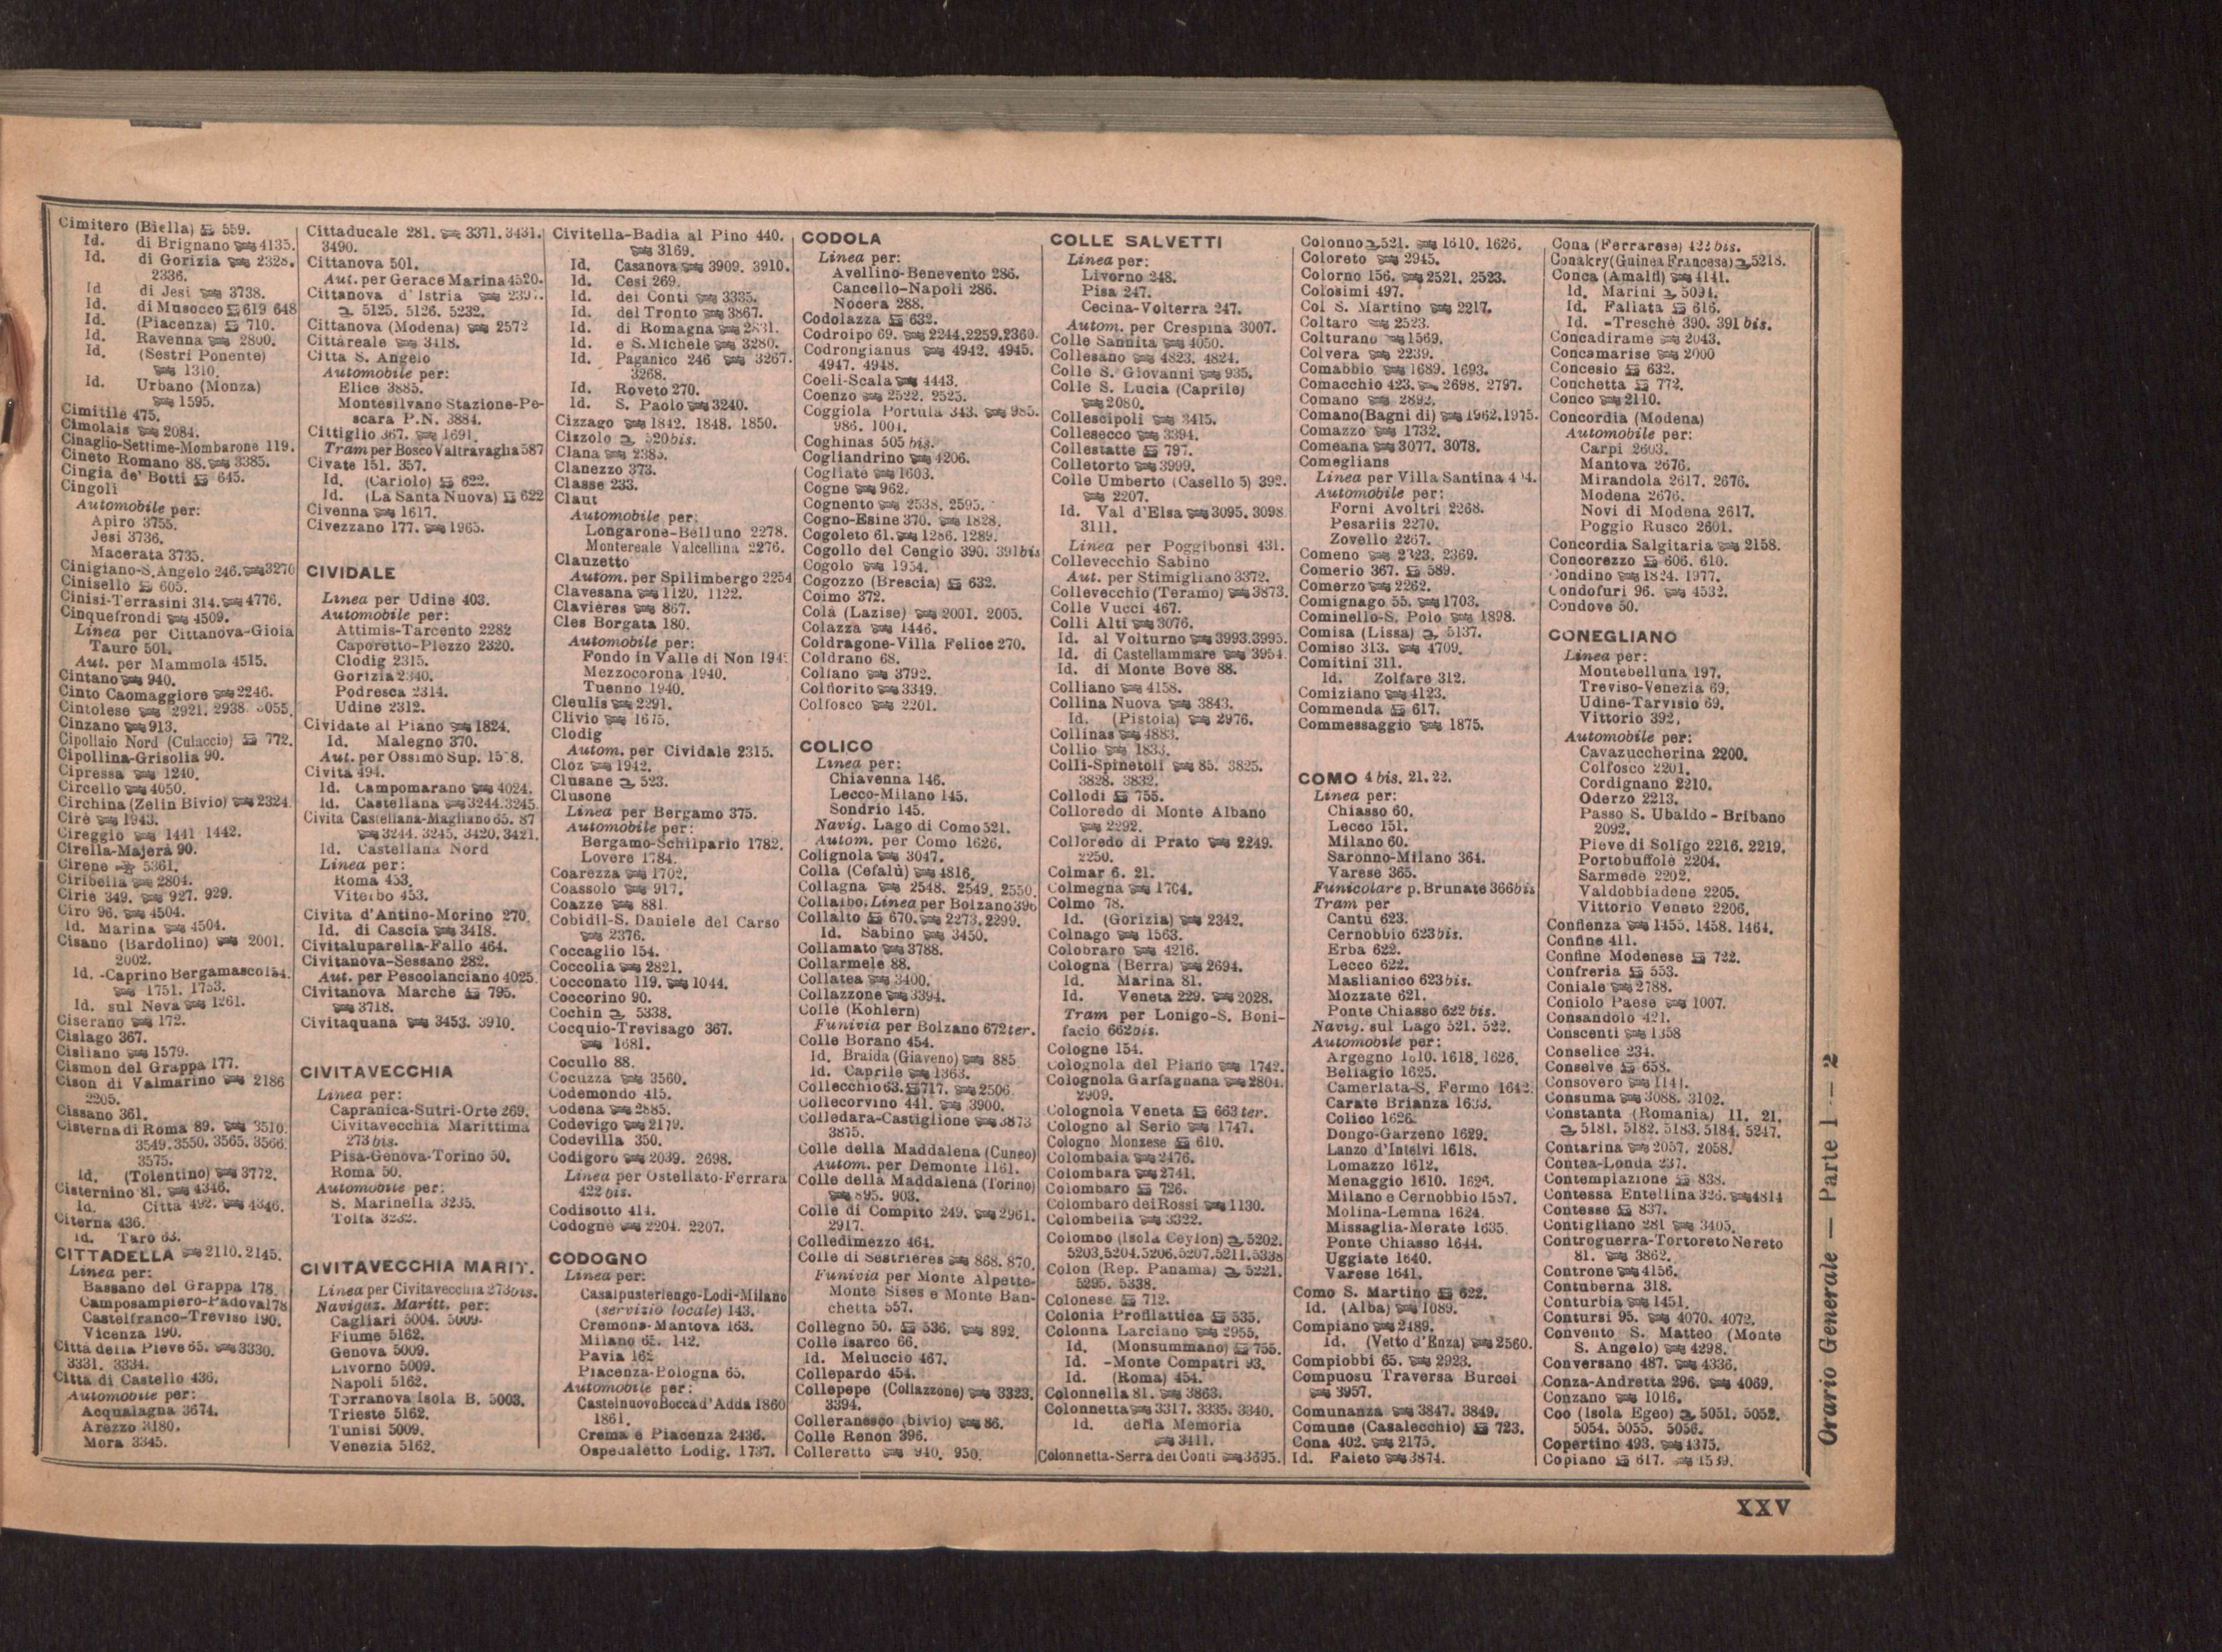 Cimitero (Biella) 559.
Id. di Brignano 4135.
Id. di Gorizia 2328.
2336.
Id di Jesi 3738.
Id. di Musocco 619 648
Id. (Piacenza) 710.
Id. Ravenna 2800.
Id. (Sestri Ponente)
1310.
Id. Urbano (Monza)
1595.
Cimitile 475.
Cimolais 2084.
Cinaglio-Settime-Mombarone 119.
Cineto Romano 88. 3385.
Cingia de' Botti 645.
Cingoli
Automobile per:
Apiro 3755.
Jesi 3736.
Macerata 3735.
Cinigiano-S. Angelo 246. 3270
Cinisello 605.
Cinisi-Terrasini 314. 4776.
Cinquefrondi 4509.
Linea per Cittanova-Gioia
Tauro 501.
Aut. per Mammola 4515.
Cintano 940.
Cinto Caomaggiore 2246.
Cintolese 2921. 2938.
Cinzano 913.
Cipollaio Nord (Culaccio) 772.
Cipollina-Grisolia 90.
Cipressa 1240.
Circello 4050.
Circhina (Zelin Bivio) 2324
Cirè 1943.
Cireggio 1441 1442.
Cirella-Majerà 90.
Cirene 5361.
Ciribella 2804.
Ciriè 349. 927. 929.
Cirò 96. 4504.
Id. Marina 4504.
Cisano (Bardolino) 2001.
2002.
Id. -Caprino Bergamasco 154.
1751. 1753.
Id. sul Neva 1261.
Ciserano 172.
Cislago 367.
Cisliano 1579.
Cismon del Grappa 177.
Cison di Valmarino 2186
2205.
Cissano 361.
Cisterna di Roma 89. 3510.
3549. 3550. 3565. 3566.
3575.
Id. (Tolentino) 3772.
Cisternino 81. 4346.
Id. Città 492. 4346.
Citerna 436.
Id. Taro 63.
CITTADELLA 2110. 2145.
Linea per:
Bassano del Grappa 178.
Camposampiero-Padova 178
Castelfranco-Treviso 190.
Vicenza 190.
Città della Pieve 65. 3330.
3331. 3334.
Città di Castello 436.
Automobile per:
Acqualagna 3674.
Arezzo 3180.
Mora 3345.
Cittaducale 281. 3371. 3431.
3490.
Cittanova 501.
Aut. per Gerace Marina 4520.
Cittanova d'Istria
5125. 5126. 5232.
Cittanova (Modena) 2572
Cittàreale 3418.
Città S. Angelo
Automobile per:
Elice 3885.
Montesilvano Stazione-Pe-
scara P.N. 3884.
Cittiglio 367. 1691.
Tram per Bosco Valtravaglia 587
Civate 151. 357.
Id. (Cariolo) 622.
Id. (La Santa Nuova) 622
Civenna 1617.
Civezzano 177. 1965.
CIVIDALE
Linea per Udine 403.
Automobile per:
Attimis-Tarcento 2282
Caporetto-Plezzo 2320.
Clodig 2315.
Gorizia 2340.
Podresca 2314.
Udine 2312.
Cividate al Piano 1824.
Id. Malegno 370.
Aut. per Ossimo Sup.
Civita 494.
Id. Campomarano 4024.
Id. Castellana 3244. 3245.
Civita Castellana-Magliano 65. 87
3244. 3245. 3420. 3421.
Id. Castellana Nord
Linea per:
Roma 453.
Viterbo 453.
Civita d'Antino-Morino 270.
Id. di Cascia 3418.
Civitaluparella-Fallo 464.
Civitanova-Sessano 282.
Aut. per Pescolanciano 4025.
Civitanova Marche 795.
3718.
Civitaquana 3453. 3910.
CIVITAVECCHIA
Linea per:
Capranica-Sutri-Orte 269.
Civitavecchia Marittima
273 bis.
Pisa-Genova-Torino 50.
Roma 50.
Automobile per:
S. Marinella 3235.
Tolfa 3232.
CIVITAVECCHIA MARIT.
Linea per Civitavecchia 273 bis.
Navigaz. Maritt. per:
Cagliari 5004. 5009.
Fiume 5162.
Genova 5009.
Livorno 5009.
Napoli 5162.
Terranova Isola B. 5003.
Trieste 5162.
Tunisi 5009.
Venezia 5162.
Civitella-Badia al Pino 440.
3169.
Id. Casanova 3909. 3910.
Id. Cesi 269.
Id. dei Conti 3335.
Id. del Tronto 3867.
Id. di Romagna 2831.
Id. e S. Michele 3280.
Id. Paganico 246 3267.
3268.
Id. Roveto 270.
Id. S. Paolo 3240.
Cizzago 1842. 1848. 1850.
Cizzolo 520 bis.
Clana 2385.
Clanezzo 373.
Classe 233.
Claut
Automobile per:
Longarone-Belluno 2278.
Montereale Valcellina 2276.
Clauzetto
Autom. per Spilimbergo 2254
Clavesana 1120. 1122.
Clavières 867.
Cles Borgata 180.
Automobile per:
Fondo in Valle di Non
Mezzocorona 1940.
Tuenno 1940.
Cleulis 2291.
Clivio 1675.
Clodig
Autom. per Cividale 2315.
Cloz 1942.
Clusane 523.
Clusone
Linea per Bergamo 375.
Automobile per:
Bergamo-Schilpario 1782.
Lovere 1784.
Coarezza 1702.
Coassolo 917.
Coazze 881.
Cobidil-S. Daniele del Carso
2376.
Coccaglio 154.
Coccolia 2821.
Cocconato 119. 1044.
Coccorino 90.
Cochin 5338.
Cocquio-Trevisago 367.
1681.
Cocullo 88.
Cocuzza 3560.
Codemondo 415.
Codena 2885.
Codevigo 2179.
Codevilla 350.
Codigoro 2039. 2698.
Linea per Ostellato-Ferrara
422 bis.
Codisotto 414.
Codognè 2204. 2207.
CODOGNO
Linea per:
Casalpusterlengo-Lodi-Milano
(servizio locale) 143.
Cremona-Mantova 163.
Milano 65. 142.
Pavia 162
Piacenza-Bologna 65.
Automobile per:
Castelnuovo Bocca d'Adda 1860
1861.
Crema e Piacenza 2436.
Ospedaletto Lodig. 1737.
CODOLA
Linea per:
Avellino-Benevento 286.
Cancello-Napoli 286.
Nocera 288.
Codolazza 632.
Codroipo 69. 2244. 2259. 2360.
Codrongianus 4942. 4945.
4947. 4948.
Coeli-Scala 4443.
Coenzo 2522. 2525.
Coggiola Portula 343. 985.
986. 1001.
Coghinas 505 bis.
Cogliandrino 4206.
Cogliate 1603.
Cogne 962.
Cognento 2538. 2595.
Cogno-Esine 370. 1828.
Cogoleto 61. 1286. 1289.
Cogollo del Cengio 390. 391 bis
Cogolo 1954.
Cogozzo (Brescia) 632.
Coimo 372.
Colà (Lazise) 2001. 2005.
Colazza 1446.
Coldragone-Villa Felice 270.
Coldrano 68.
Coliano 3792.
Colfiorito 3349.
Colfosco 2201.
COLICO
Linea per:
Chiavenna 146.
Lecco-Milano 145.
Sondrio 145.
Navig. Lago di Como 521.
Autom. per Como 1626.
Colignola 3047.
Colla (Cefalù) 4816.
Collagna 2548. 2549. 2550.
Collalbo. Linea per Bolzano 396
Collalto 670. 2273. 2299.
Id. Sabino 3450.
Collamato 3788.
Collarmele 88.
Collatea 3400.
Collazzone 3394.
Colle (Kohlern)
Funivia per Bolzano 672 ter.
Colle Borano 454.
Id. Braida (Giaveno) 885
Id. Caprile 1363.
Collecchio 63. 717. 2506
Collecorvino 441. 3900.
Colledara-Castiglione 3873
3875.
Colle della Maddalena (Cuneo)
Autom. per Demonte 1161.
Colle della Maddalena (Torino)
895. 903.
Colle di Compito 249. 2961.
2917.
Colledimezzo 464.
Colle di Sestrieres 868. 870.
Funivia per Monte Alpette-
Monte Sises e Monte Ban-
chetta 557.
Collegno 50. 536. 892.
Colle Isarco 66.
Id. Meluccio 467.
Collepardo 454.
Collepepe (Collazzone) 3323.
3394.
Colleranesco (bivio) 86.
Colle Renon 396.
Colleretto 940. 950.
COLLE SALVETTI
Linea per:
Livorno 248.
Pisa 247.
Cecina-Volterra 247.
Autom. per Crespina 3007.
Colle Sannita 4050.
Collesano 4823. 4824.
Colle S. Giovanni 935.
Colle S. Lucia (Caprile)
2080.
Collescipoli 3415.
Collesecco 3394.
Collestatte 797.
Colletorto 3999.
Colle Umberto (Casello 5) 392.
2207.
Id. Val d'Elsa 3095. 3098
3111.
Linea per Poggibonsi 431.
Collevecchio Sabino
Aut. per Stimigliano 3372.
Collevecchio (Teramo) 3873.
Colle Vucci 467.
Colli Alti 3076.
Id. al Volturno 3993. 3995.
Id. di Castellammare 3954.
Id. di Monte Bove 88.
Colliano 4158.
Collina Nuova 3843.
Id. (Pistoia) 2976.
Collinas 4883.
Collio 1833.
Colli-Spinetoli 85. 3825.
3828. 3832.
Collodi 755.
Colloredo di Monte Albano
2292.
Colloredo di Prato 2249.
2250.
Colmar 6. 21.
Colmegna 1704.
Colmo 78.
Id. (Gorizia) 2342.
Colnago 1563.
Colobraro 4216.
Cologna (Berra) 2694.
Id. Marina 81.
Id. Veneta 229. 2028.
Tram per Lonigo-S. Boni-
facio 662 bis.
Cologne 154.
Colognola del Piano 1742.
Colognola Garfagnana 2804.
2909.
Colognola Veneta 663 ter.
Cologno al Serio 1747.
Cologno Monzese 610.
Colombaia 2476.
Colombara 2741.
Colombaro 726.
Colombaro dei Rossi 1130.
Colombella 3322.
Colombo (Isola Ceylon) 5202.
5203. 5204. 5206. 5207. 5211. 5338
Colon (Rep. Panama) 5221.
5295. 5338.
Colonese 712.
Colonia Profilattica 535.
Colonna Larciano 2955.
Id. (Monsummano) 755.
Id. -Monte Compatri 93.
Id. (Roma) 454.
Colonnella 81. 3863.
Colonnetta 3317. 3335. 3340.
Id. della Memoria
3411.
Colonnetta-Serra dei Conti 3695.
Colonno 521. 1610. 1626.
Coloreto 2945.
Colorno 156. 2521. 2523.
Colosimi 497.
Col S. Martino 2217.
Coltaro 2523.
Colturano 1569.
Colvera 2239.
Comabbio 1689. 1693.
Comacchio 423. 2698. 2797.
Comano 2892.
Comano (Bagni di) 1962. 1975.
Comazzo 1732.
Comeana 3077. 3078.
Comeglians
Linea per Villa Santina
Automobile per:
Forni Avoltri 2268.
Pesariis 2270.
Zovello 2267.
Comeno 2323. 2369.
Comerio 367. 589.
Comerzo 2262.
Comignago 55. 1703.
Cominello-S. Polo 1898.
Comisa (Lissa) 5137.
Comiso 313. 4709.
Comitini 311.
Id. Zolfare 312.
Comiziano 4123.
Commenda 617.
Commessaggio 1875.
COMO 4 bis. 21. 22.
Linea per:
Chiasso 60.
Lecco 151.
Milano 60.
Saronno-Milano 364.
Varese 365.
Funicolare p. Brunate 366 bis
Tram per
Cantù 623.
Cernobbio 623 bis.
Erba 622.
Lecco 622.
Maslianico 623 bis.
Mozzate 621.
Ponte Chiasso 622 bis.
Navig. sul Lago 521. 522.
Automobile per:
Argegno 1610. 1618. 1626.
Bellagio 1625.
Camerlata-S. Fermo 1642.
Carate Brianza 1633.
Colico 1626.
Dongo-Garzeno 1629.
Lanzo d'Intelvi 1618.
Lomazzo 1612.
Menaggio 1610. 1626.
Milano e Cernobbio 1587.
Molina-Lemna 1624.
Missaglia-Merate 1635.
Ponte Chiasso 1644.
Uggiate 1640.
Varese 1641.
Como S. Martino 622.
Id. (Alba) 1089.
Compiano 2489.
Id. (Vetto d'Enza) 2560.
Compiobbi 65. 2923.
Compuosu Traversa Burcei
3957.
Comunanza 3847. 3849.
Comune (Casalecchio) 723.
Cona 402. 2175.
Id. Faleto 3874.
Cona (Ferrarese) 422 bis.
Conakry (Guinea Francese) 5218.
Conca (Amalfi) 4141.
Id. Marini 5094.
Id. Fallata 616.
Id. -Treschè 390. 391 bis.
Concadirame 2043.
Concamarise 2000
Concesio 632.
Conchetta 772.
Conco 2110.
Concordia (Modena)
Automobile per:
Carpi 2603.
Mantova 2676.
Mirandola 2617. 2676.
Modena 2676.
Novi di Modena 2617.
Poggio Rusco 2601.
Concordia Salgitaria 2158.
Concorezzo 606. 610.
Condino 1824. 1977.
Condofuri 96. 4532.
Condove 50.
CONEGLIANO
Linea per:
Montebelluna 197.
Treviso-Venezia 69.
Udine-Tarvisio 69.
Vittorio 392.
Automobile per:
Cavazuccherina 2200.
Colfosco 2201.
Cordignano 2210.
Oderzo 2213.
Passo S. Ubaldo - Bribano
2092.
Pieve di Soligo 2216. 2219.
Portobuffolè 2204.
Sarmede 2202.
Valdobbiadene 2205.
Vittorio Veneto 2206.
Confienza 1455. 1458. 1464.
Confine 411.
Confine Modenese 722.
Confreria 553.
Coniale 2788.
Coniolo Paese 1007.
Consandolo 421.
Conscenti 1358
Conselice 234.
Conselve 658.
Consovero 1141.
Consuma 3088. 3102.
Constanta (Romania) 11. 21.
5181. 5182. 5183. 5184. 5247.
Contarina 2057. 2058.
Contea-Londa 237.
Contemplazione 838.
Contessa Entellina 326. 4814
Contesse 837.
Contigliano 281 3405.
Controguerra-Tortoreto Nereto
81. 3862.
Controne 4156.
Contuberna 318.
Conturbia 1451.
Contursi 95. 4070. 4072.
Convento S. Matteo (Monte
S. Angelo) 4298.
Conversano 487. 4336.
Conza-Andretta 296. 4069.
Conzano 1016.
Coo (Isola Egeo) 5051. 5052.
5054. 5055. 5056.
Copertino 493. 4375.
Copiano 617. 1539.
Orario Generale — Parte I — 2
XXV